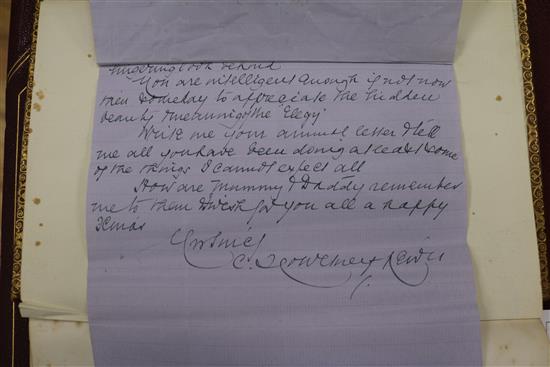 lingering look behind
You are intelligent enough if not now
then someday to appreciate the hidden
beauty meaning of the "Elegy"
Write me your annual letter & tell
me all you have been doing at least some
of the things I cannot expect all
How are Mummy & Daddy remember
me to them & wish for you all a happy
Xmas
C.